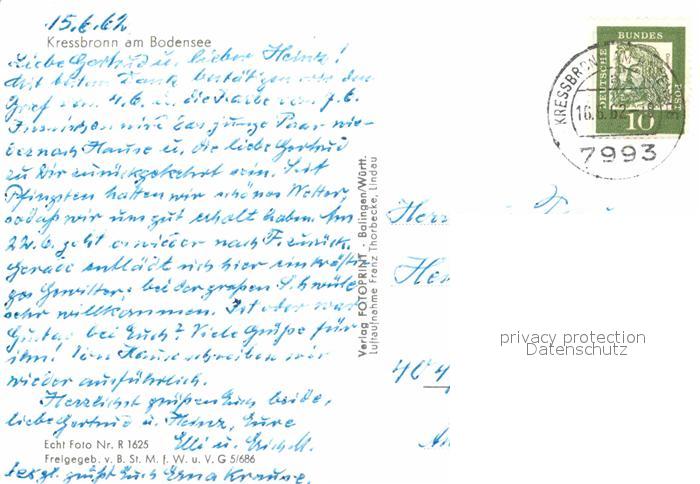 15.6.62
Kressbronn am Bodensee
Liebe Gertrud u. lieber Heinz!
Mit bestem Dank bestätigen wir den
Brief vom 4.6. u. die Karte vom 7.6.
Inzwischen wird das junge Paar wie-
der nach Hause u. die liebe Gertrud
zu Dir zurückgekehrt sein. Seit
Pfingsten hatten wir schönes Wetter,
sodaß wir uns gut erholt haben. Am
22.6. geht es wieder nach F. zurück.
Gerade entlädt sich hier ein kräfti-
ges Gewitter, bei der großen Schwüle
sehr willkommen. Ist oder war
Gustav bei Euch? Viele Grüße für
ihn! Von Hause schreiben wir
wieder ausführlich.
Herzlichst grüßen Euch beide,
liebe Gertrud u. Heinz, Eure
Elli u. Erich M.
Echt Foto Nr. R 1625
Freigegeb. v. B. St. M. f. W. u. V. G 5/686
desgl. grüßt Euch Erna Krause.
Verlag FOTOPRINT - Balingen/Württ.
Luftaufnahme Franz Thorbecke, Lindau
DEUTSCHE BUNDESPOST
10
KRESSBRONN
16.6.62
7993
privacy protection
Datenschutz